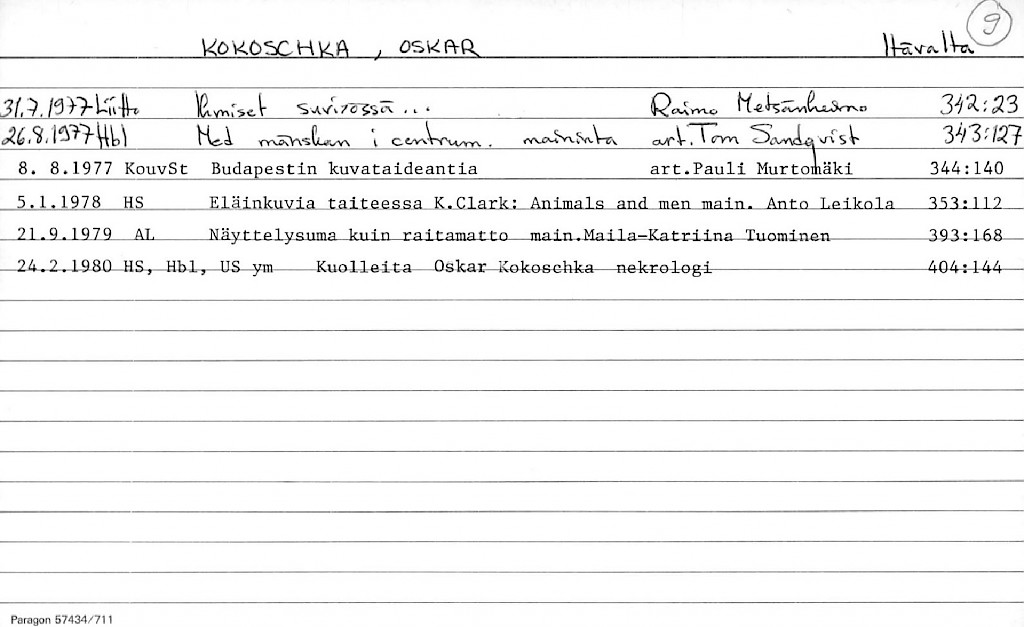 9
KOKOSCHKA, OSKAR Itävalta
31.7.1977 Liitto Ihmiset suvi... Raimo Metsänheimo 342:23
26.8.1977 Hbl Med mänskan i centrum. maininta art. Tom Sandqvist 343:127
8. 8.1977 KouvSt Budapestin kuvataideantia art.Pauli Murtomäki 344:140
5.1.1978 HS Eläinkuvia taiteessa K.Clark: Animals and men main. Anto Leikola 353:112
21.9.1979 AL Näyttelysuma kuin raitamatto main.Maila-Katriina Tuominen 393:168
24.2.1980 HS, Hbl, US ym Kuolleita Oskar Kokoschka nekrologi 404:144
Paragon 57434/711